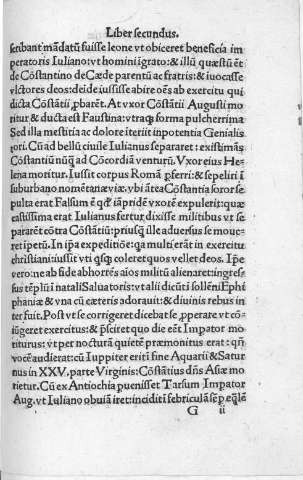 Liber secundus.
scribant mãdatũ fuisse leone vt obiiceret beneficia im
peratoris Iuliano: vt homini igrato: & illũ quæstũ ẽt
de Cõstantino de Cæde parentũ ac fratris: & iuocasse
vltores deos: deide iussisse abire oẽs ab exercitu qui
dicta Cõstãtii ꝓbarẽt. At vxor Cõstãtii Augusti mo
ritur & ducta est Faustina: vtraqꝫ forma pulcherrima
Sed illa mestitia ac dolore iteriit inpotentia Genialis
tori. Cũ ad bellũ ciuile Iulianus separaret: existimãs
Cõstantiũ nũqȝ ad Cõcordiã venturũ. Vxor eius He
lena moritur. Iussit corpus Romã ꝓferri: & sepeliri ĩ
suburbano nomẽtanæ viæ: ybi ãtea Cõstantia soror se
pulta erat Falsum ẽ qđ iãpridẽ vxorẽ expulerit: quæ
castissima erat Iulianus fertur dixisse militibus vt se
pararẽt cõtra Cõstãtiũ: priusqȝ ille aduersus se moue
ret ipetũ. In ipa expeditiõe: qa multi erãt in exercitu
christiani: iussit vti qsqȝ coleret quos vellet deos. Ipe
vero: ne ab side abhortẽs aios militũ alienaret: ingres
sus tẽplũ ĩ natali Saluatoris: vt alii dicũt ĩ sollẽni Ephi
phaniæ & vna cũ cæteris adorauit: & diuinis rebus in
ter fuit. Post vt se corrigeret dicebat se ꝓperare vt cõ
iũgeret exercitus: & p̃sciret quo die eẽt Impator mo
titurus: vt per nocturã quietẽ præmonitus erat: qñ
vocẽ audierat: cũ Iuppiter erit ĩ fine Aquarii & Satur
nus in XXV. parte Virginis: Cõstãtius dñs Asiæ mo
rietur. Cũ ex Antiochia puenisset Tarsum Impator
Aug. vt Iuliano obuiã iret: incidit ĩ febriculã sȩp eqlẽ
G ii